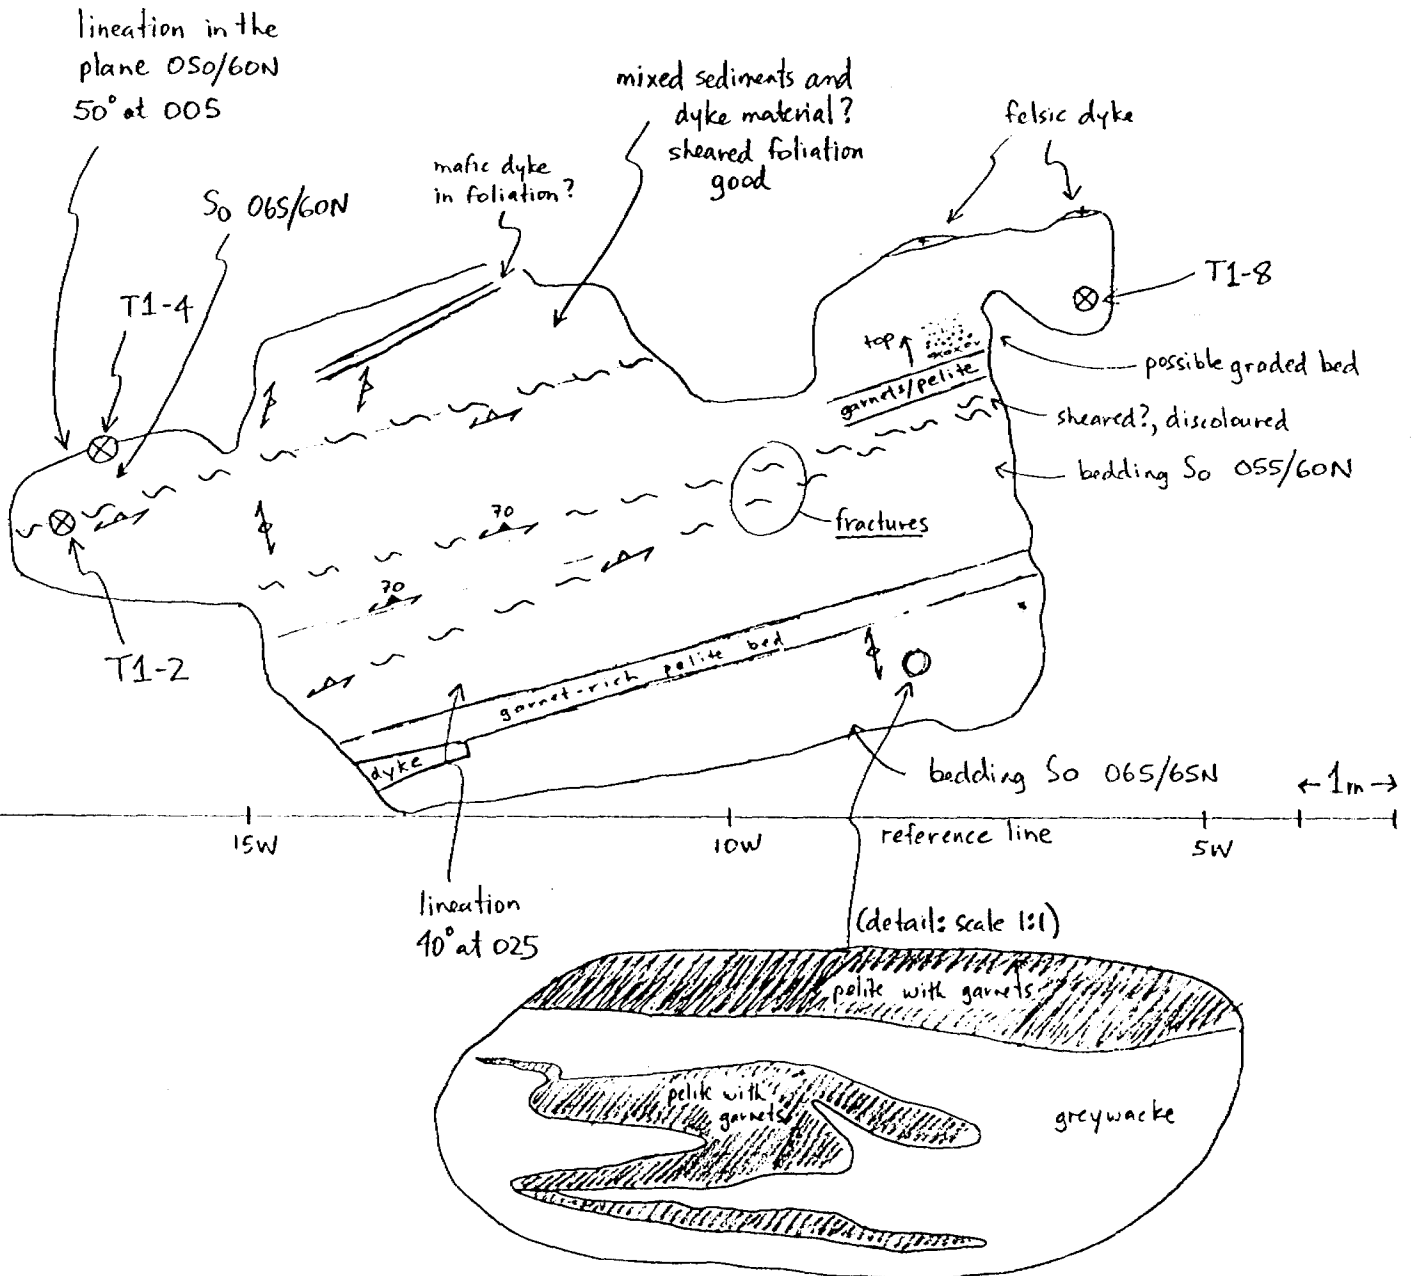 lineation in the
plane 050/60N
50° at 005
mixed sediments and
dyke material?
sheared foliation
good
felsic dyke
mafic dyke
in foliation?
So 065/60N
T1-4
T1-8
top
possible graded bed
garnets/pelite
sheared?, discoloured
bedding So 055/60N
70
fractures
70
T1-2
garnet-rich pelite bed
dyke
bedding So 065/65N
1m
15W
10W
reference line
5W
lineation
40° at 025
(detail: scale 1:1)
pelite with garnets
pelite with
garnets
greywacke